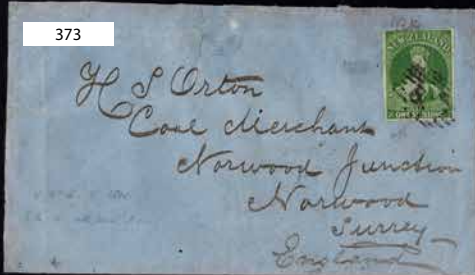 373
NEW ZEALAND
ONE SHILLING
H S Orton
Coal Merchant
Norwood Junction
Norwood
Surrey
England